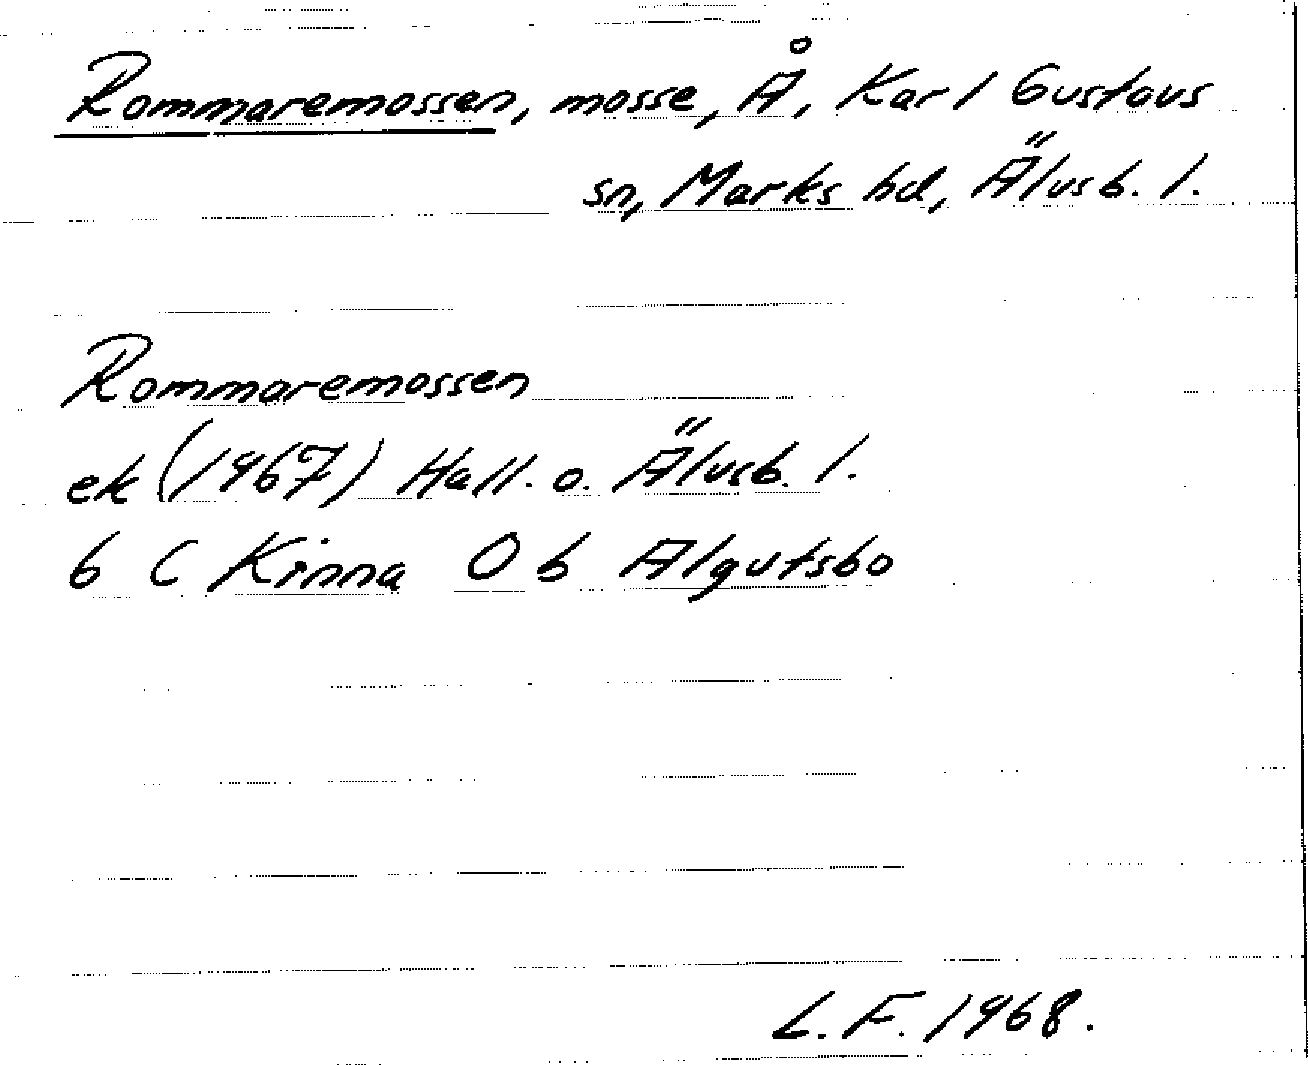 Rommaremossen, mosse, Å, Karl Gustavs
sn, Marks hd, Älvsb. l.
Rommaremossen
ek (1967) Hall. o. Älvsb. l.
6 C Kinna O b Algutsbo
L. F. 1968.